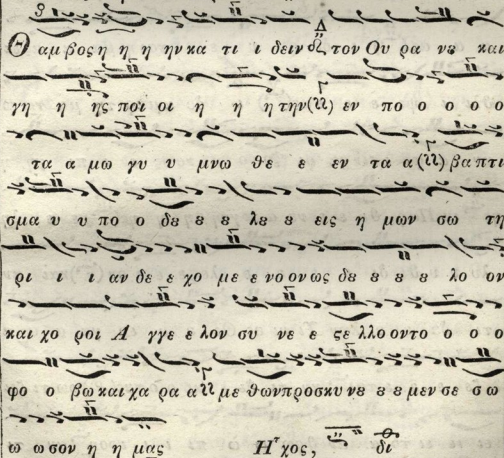 Θ αμ βος η η η ην κα τι ι δειν τον Ου ρα νȣ και
γη η ης ποι οι η η η την (ζζ) εν πο ο ο ο ο
τα α μω γυ υ μνω θε ε εν τα α (ζζ) βα πτι
σμα υ υ πο ο δȣ ȣ ȣ λȣ ȣ εις η μων σω τη
ρι ι ι αν δε ε χο με ε νο ον ως δȣ ȣ ȣ ȣ λο ον
και χο ροι Α γγε ε λον συ νε ε ϛε λλο οντο ο ο ο
φο ο βω και χα ρα α με θων προσκυ νȣ ȣ ȣ μεν σε σω
ω ω σον η η μας Ηχος, δι